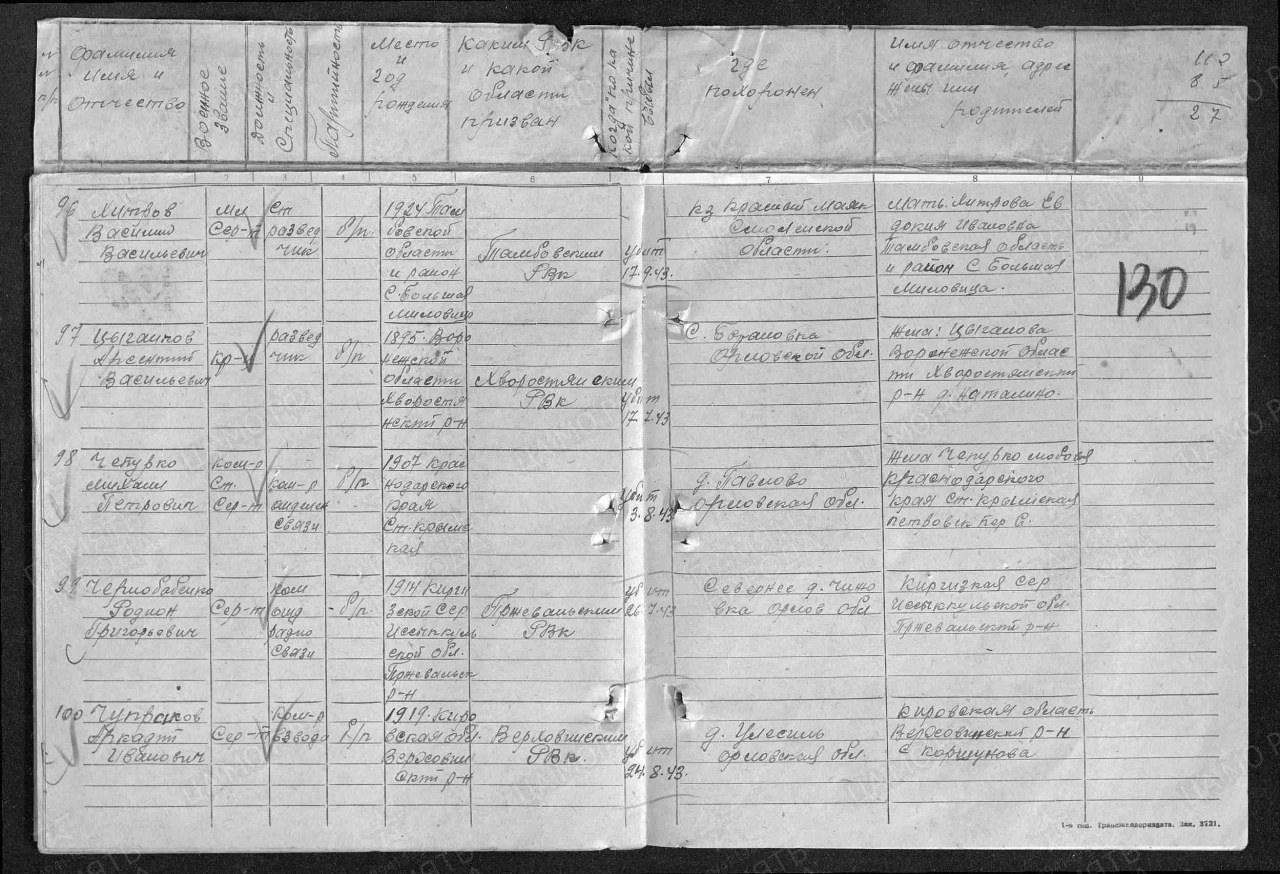 №№ п/п
Фамилия
Имя и
отчество
Военное
звание
Должность
и
Специальность
Партийность
Место
и
год
рождения
Каким РВК
и какой
области
призван
когда и по ка
кой причине
выбыл
где
похоронен
Имя отчество
и фамилия, адрес
жены или
родителей
112
85
27
1 2 3 4 5 6 7 8 9
96 Хитров
Василий
Васильевич
Мл
Сер-т
Ст
развед
чик
б/п.
1924 Там
бовской
области
и район
С. Большая
Миловица
Тамбовским
РВК
Убит
17.9.43.
кз Красный Маяк
Смоленской
области.
Мать: Хитрова Ев
докия Ивановна
Тамбовская область
и район С Большая
Миловица.
130
97 Цыганков
Арсентий
Васильевич
кр-ц
развед
чик
б/п
1895. Воро
нежской
области
Хворостя
нскій р-н
Хворостянским
РВК
Убит
17.7.43
С.
Орловской обл.
жена: Цыганова
Воронежской облас
ти Хворостянский
р-н д. Наталино.
98 Чепурко
Михаил
Петрович
ком-р
Ст.
Сер-т
ком-р
связи
б/п
1907 Крас
нодарского
края
Ст. Крымс
кая
Убит
3.8.43
д. Павлово
Орловская обл.
жена Чепурко
Краснодарского
края Ст. Крымская
петровск пер 6.
99 Чернобабенко
Родион
Григорьевич
Сер-т
ком
отд
радио
связи
- б/п.
1914 Кирги
зской Сер
Иссыккуль
ской обл.
Пржевальск
р-н
Пржевальским
РВК
убит
26.7.43
Севернее д. Чино
вка Орлов обл
Киргизкая Сер
Иссыккульской обл.
Пржевальский р-н
100 Чупраков
Аркадий
Иванович
Сер-т
ком-р
взвода
б/п
1919. Киро
вская обл.
Верховин
Ский р-н
Верховинским
РВК.
убит
24.8.43.
д.
Орловская обл.
Кировская область
Верховинский р-н
С Коршунова
1-я тип. Трансжелдориздата. Зак. 3721.